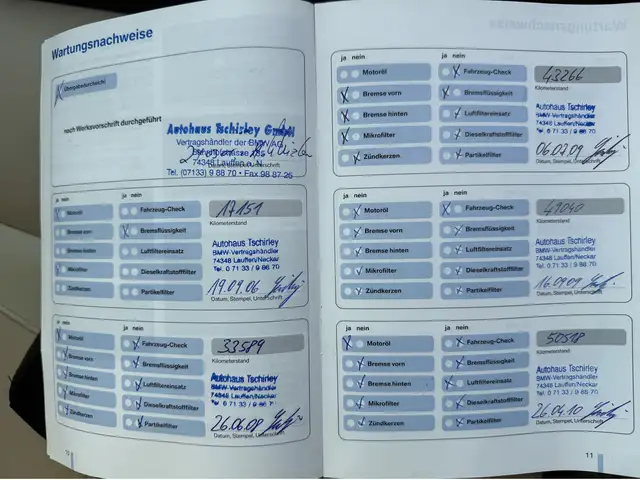 Wartungsnachweise
Übergabedurchsicht
nach Werksvorschrift durchgeführt
Autohaus Tschirley GmbH
Vertragshändler der BMW AG
74348 Lauffen a. N.
Tel. (07133) 9 88 70 • Fax 98 87 25
ja nein ja nein
Motoröl Fahrzeug-Check 17151
Kilometerstand
Bremse vorn Bremsflüssigkeit
Bremse hinten Luftfiltereinsatz
Mikrofilter Dieselkraftstofffilter
Zündkerzen Partikelfilter
Autohaus Tschirley
BMW-Vertragshändler
74348 Lauffen/Neckar
Tel. 0 71 33 / 9 88 70
19.09.06
Datum, Stempel, Unterschrift
ja nein ja nein
Motoröl Fahrzeug-Check 33589
Kilometerstand
Bremse vorn Bremsflüssigkeit
Bremse hinten Luftfiltereinsatz
Mikrofilter Dieselkraftstofffilter
Zündkerzen Partikelfilter
Autohaus Tschirley
BMW-Vertragshändler
74348 Lauffen/Neckar
Tel. 0 71 33 / 9 88 70
26.06.08
Datum, Stempel, Unterschrift
ja nein ja nein
Motoröl Fahrzeug-Check 43266
Kilometerstand
Bremse vorn Bremsflüssigkeit
Bremse hinten Luftfiltereinsatz
Mikrofilter Dieselkraftstofffilter
Zündkerzen Partikelfilter
Autohaus Tschirley
BMW-Vertragshändler
74348 Lauffen/Neckar
Tel. 0 71 33 / 9 88 70
06.02.09
Datum, Stempel, Unterschrift
ja nein ja nein
Motoröl Fahrzeug-Check 49040
Kilometerstand
Bremse vorn Bremsflüssigkeit
Bremse hinten Luftfiltereinsatz
Mikrofilter Dieselkraftstofffilter
Zündkerzen Partikelfilter
Autohaus Tschirley
BMW-Vertragshändler
74348 Lauffen/Neckar
Tel. 0 71 33 / 9 88 70
16.09.09
Datum, Stempel, Unterschrift
ja nein ja nein
Motoröl Fahrzeug-Check 50518
Kilometerstand
Bremse vorn Bremsflüssigkeit
Bremse hinten Luftfiltereinsatz
Mikrofilter Dieselkraftstofffilter
Zündkerzen Partikelfilter
Autohaus Tschirley
BMW-Vertragshändler
74348 Lauffen/Neckar
Tel. 0 71 33 / 9 88 70
26.04.10
Datum, Stempel, Unterschrift
11